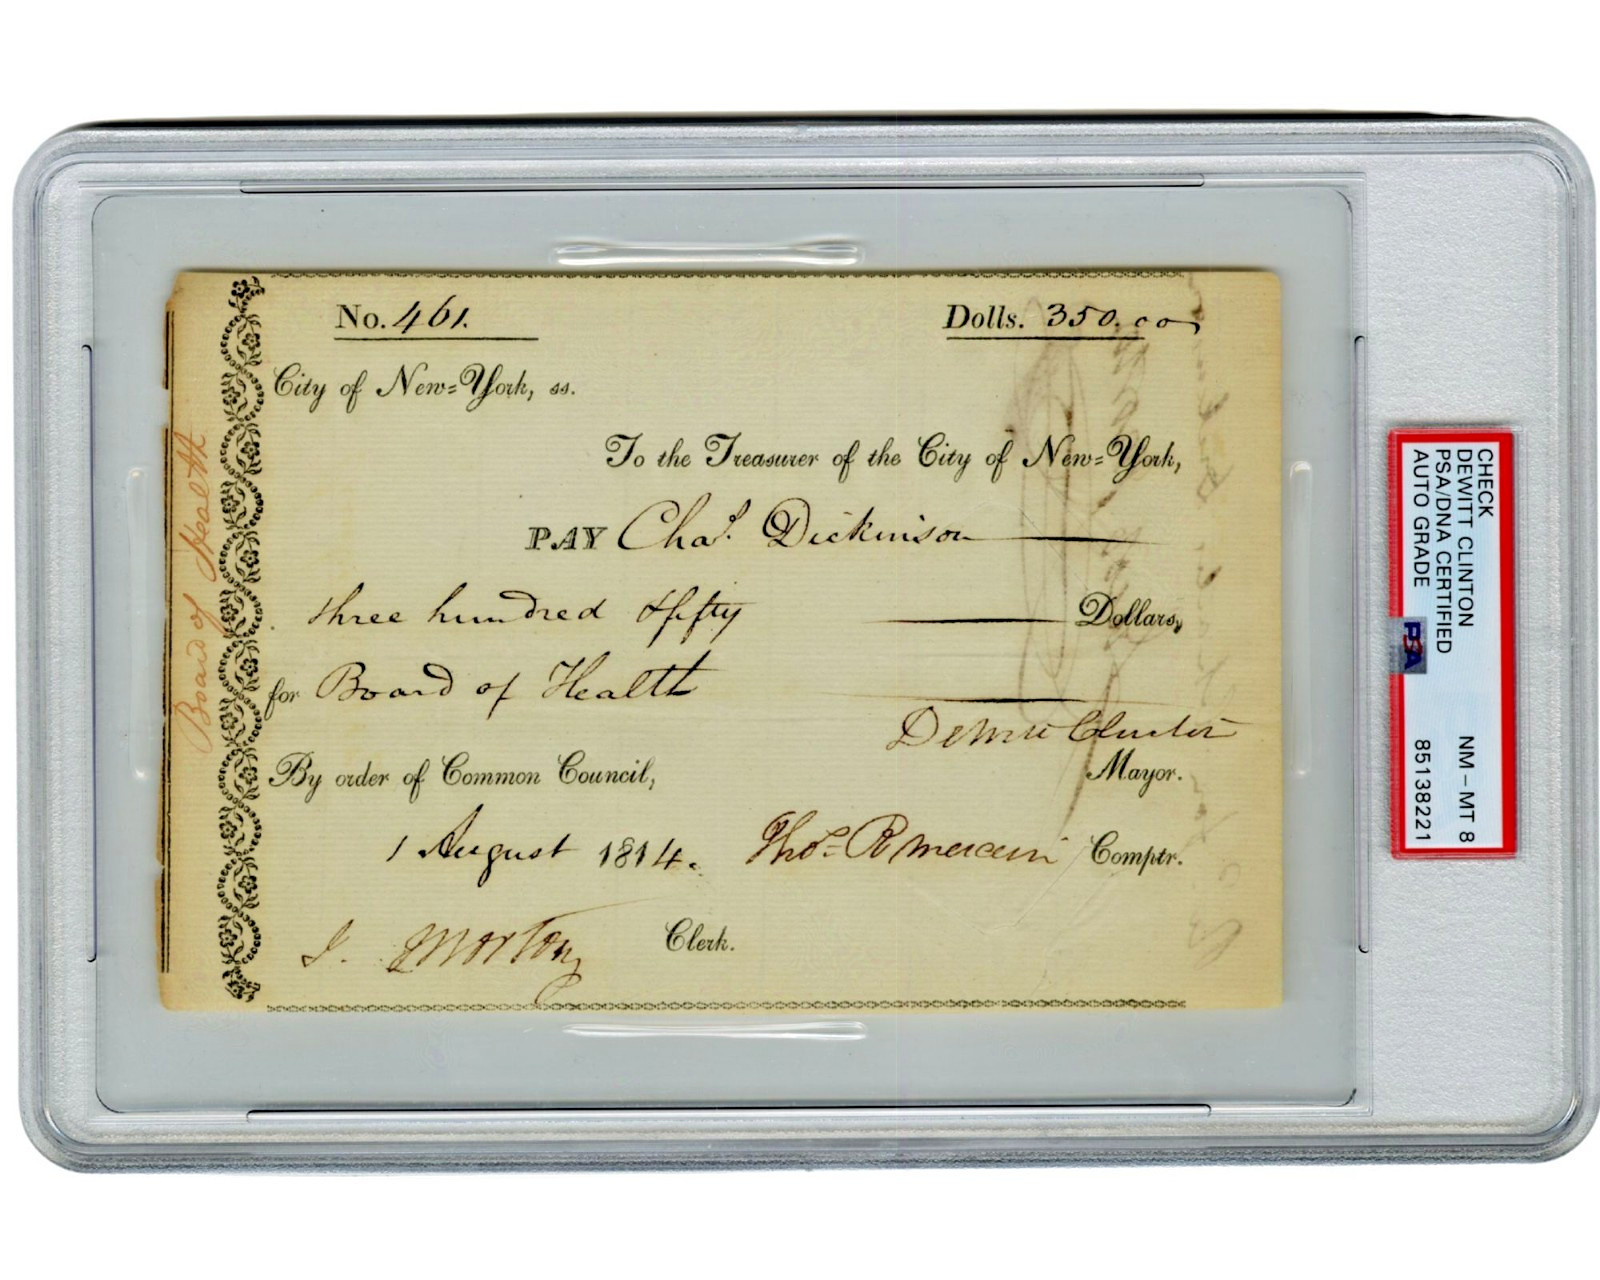 No. 461.
Dolls. 350.00
City of New=York, ss.
To the Treasurer of the City of New=York,
PAY Chas. Dickinson
three hundred & fifty Dollars,
for Board of Health
DeWitt Clinton
By order of Common Council,
Mayor.
1 August 1814.
Thos. R Mercein Comptr.
J. Morton Clerk.
Board of Health
CHECK
DEWITT CLINTON
PSA/DNA CERTIFIED
AUTO GRADE
PSA
NM – MT 8
85138221